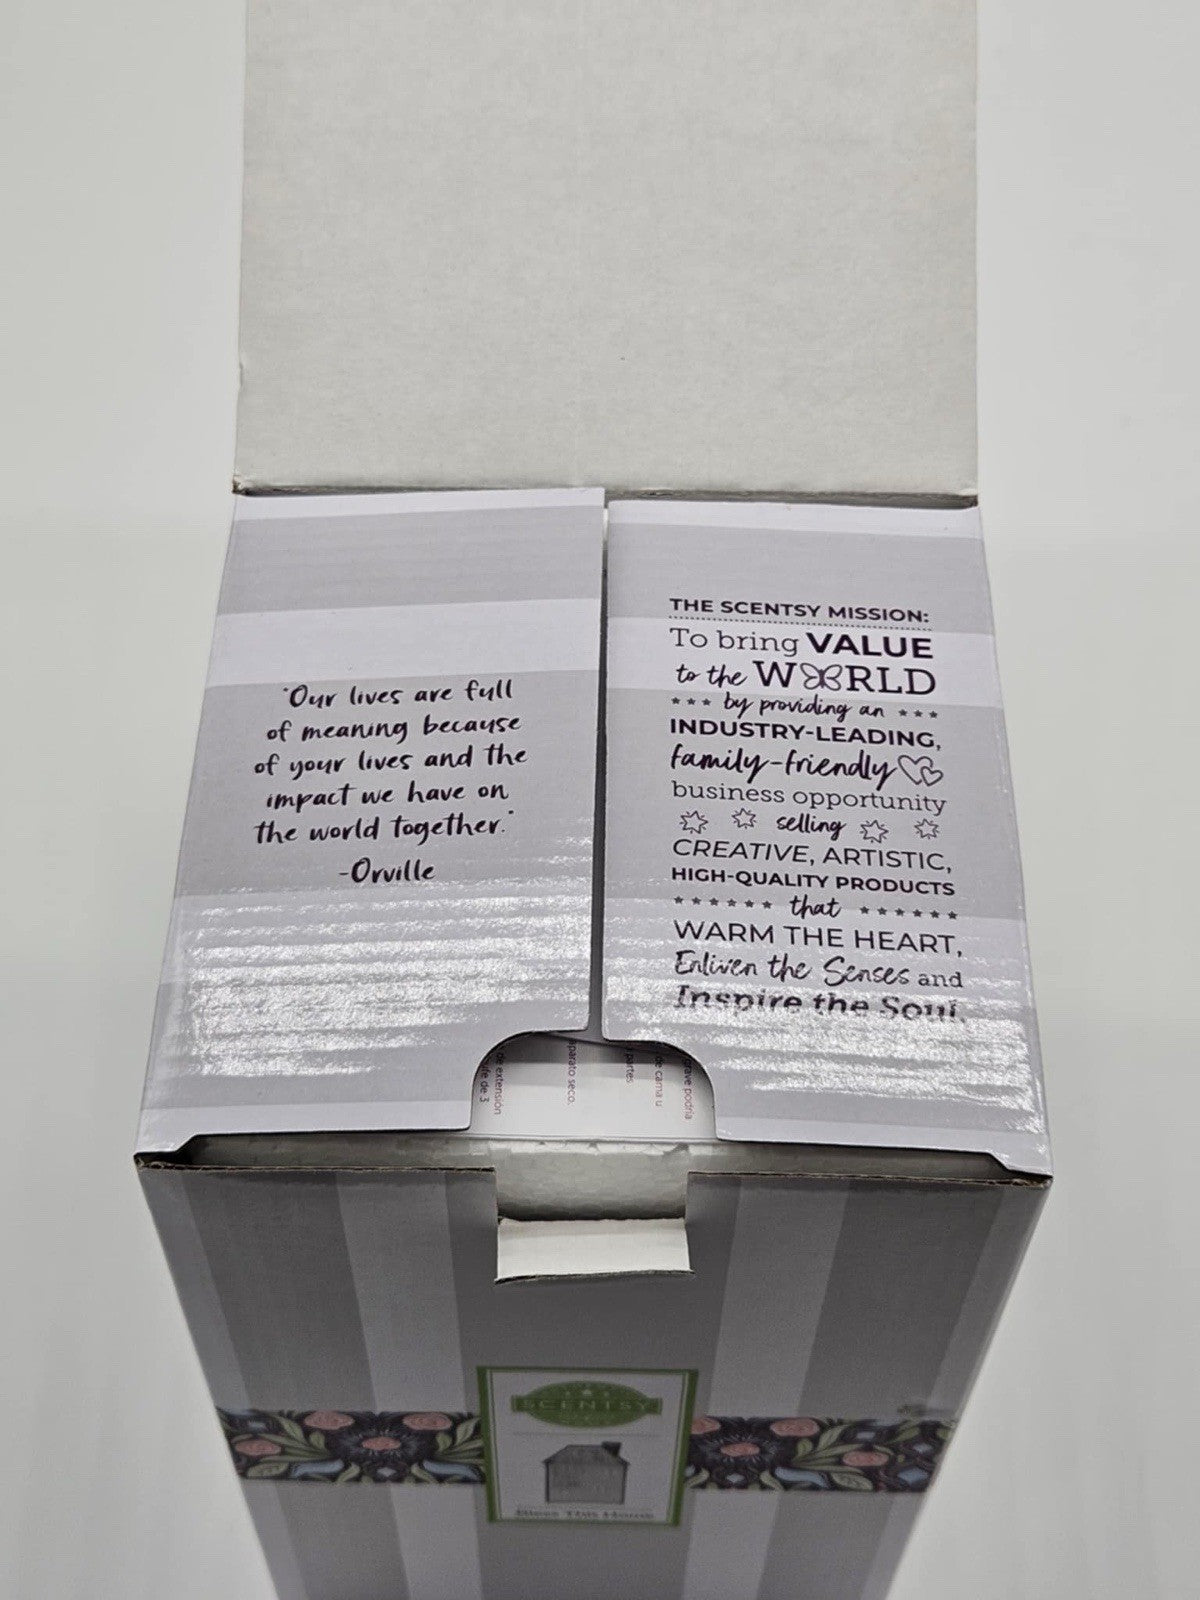 "Our lives are full
of meaning because
of your lives and the
impact we have on
the world together."
-Orville
THE SCENTSY MISSION:
To bring VALUE
to the WORLD
by providing an
INDUSTRY-LEADING,
family-friendly
business opportunity
selling
CREATIVE, ARTISTIC,
HIGH-QUALITY PRODUCTS
that
WARM THE HEART,
Enliven the Senses and
Inspire the Soul.
de extensión
ufe de 3
aparato seco.
partes
de cama u
grave podría
SCENTSY
Bless This House